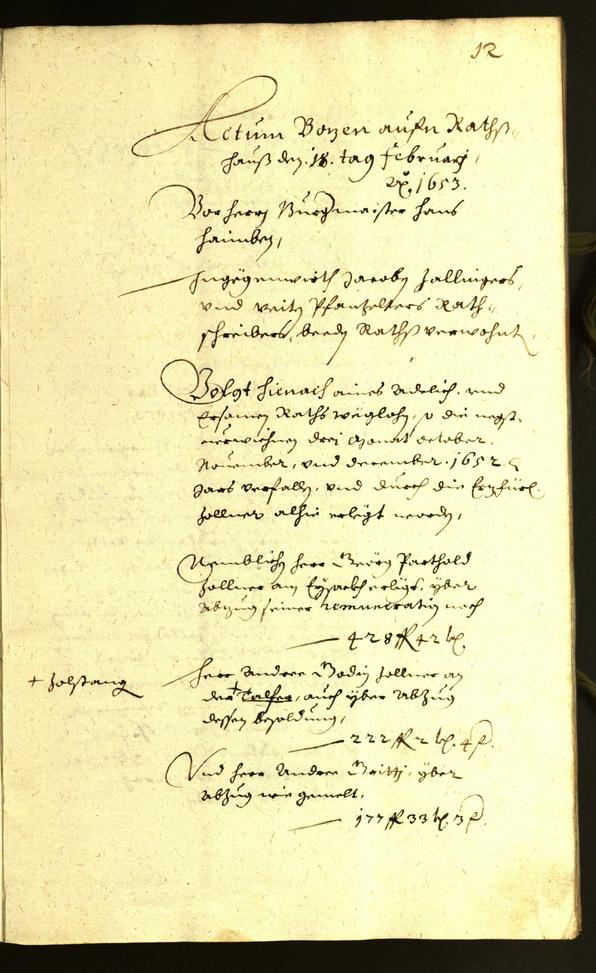 12
Actum Bozen aufn Rathß-
hauß den 18. tag Februarj
1653.
Vor herrn Burgmaister Hans
Haimben,
Ingegenwirth Jacoben Zallingers
vnd veiten Pfanzelters Rath-
schreibers, beede Rathß verwohnt
Volgt hienach aines Adelich. vnd
Ersamen Raths weglohn, so die negst-
verwichnen drei Monat october,
November, vnd december. 1652
Jars verfallen, vnd durch die Erzfürl.
Zollner alhie erlegt worden,
Namblichen herr Geörg Parthold
Zollner am Eysackh erlegt, yber
Abzug seiner remuneration noch
428 fl 42 kr
+ Zolstang
herr Andree Zollner an
der + Talfer, auch yber Abzug
dessen besoldung,
222 fl 2 kr. 4
Vnd herr Andree yber
Abzug wie gemelt,
177 fl 33 kr. 3